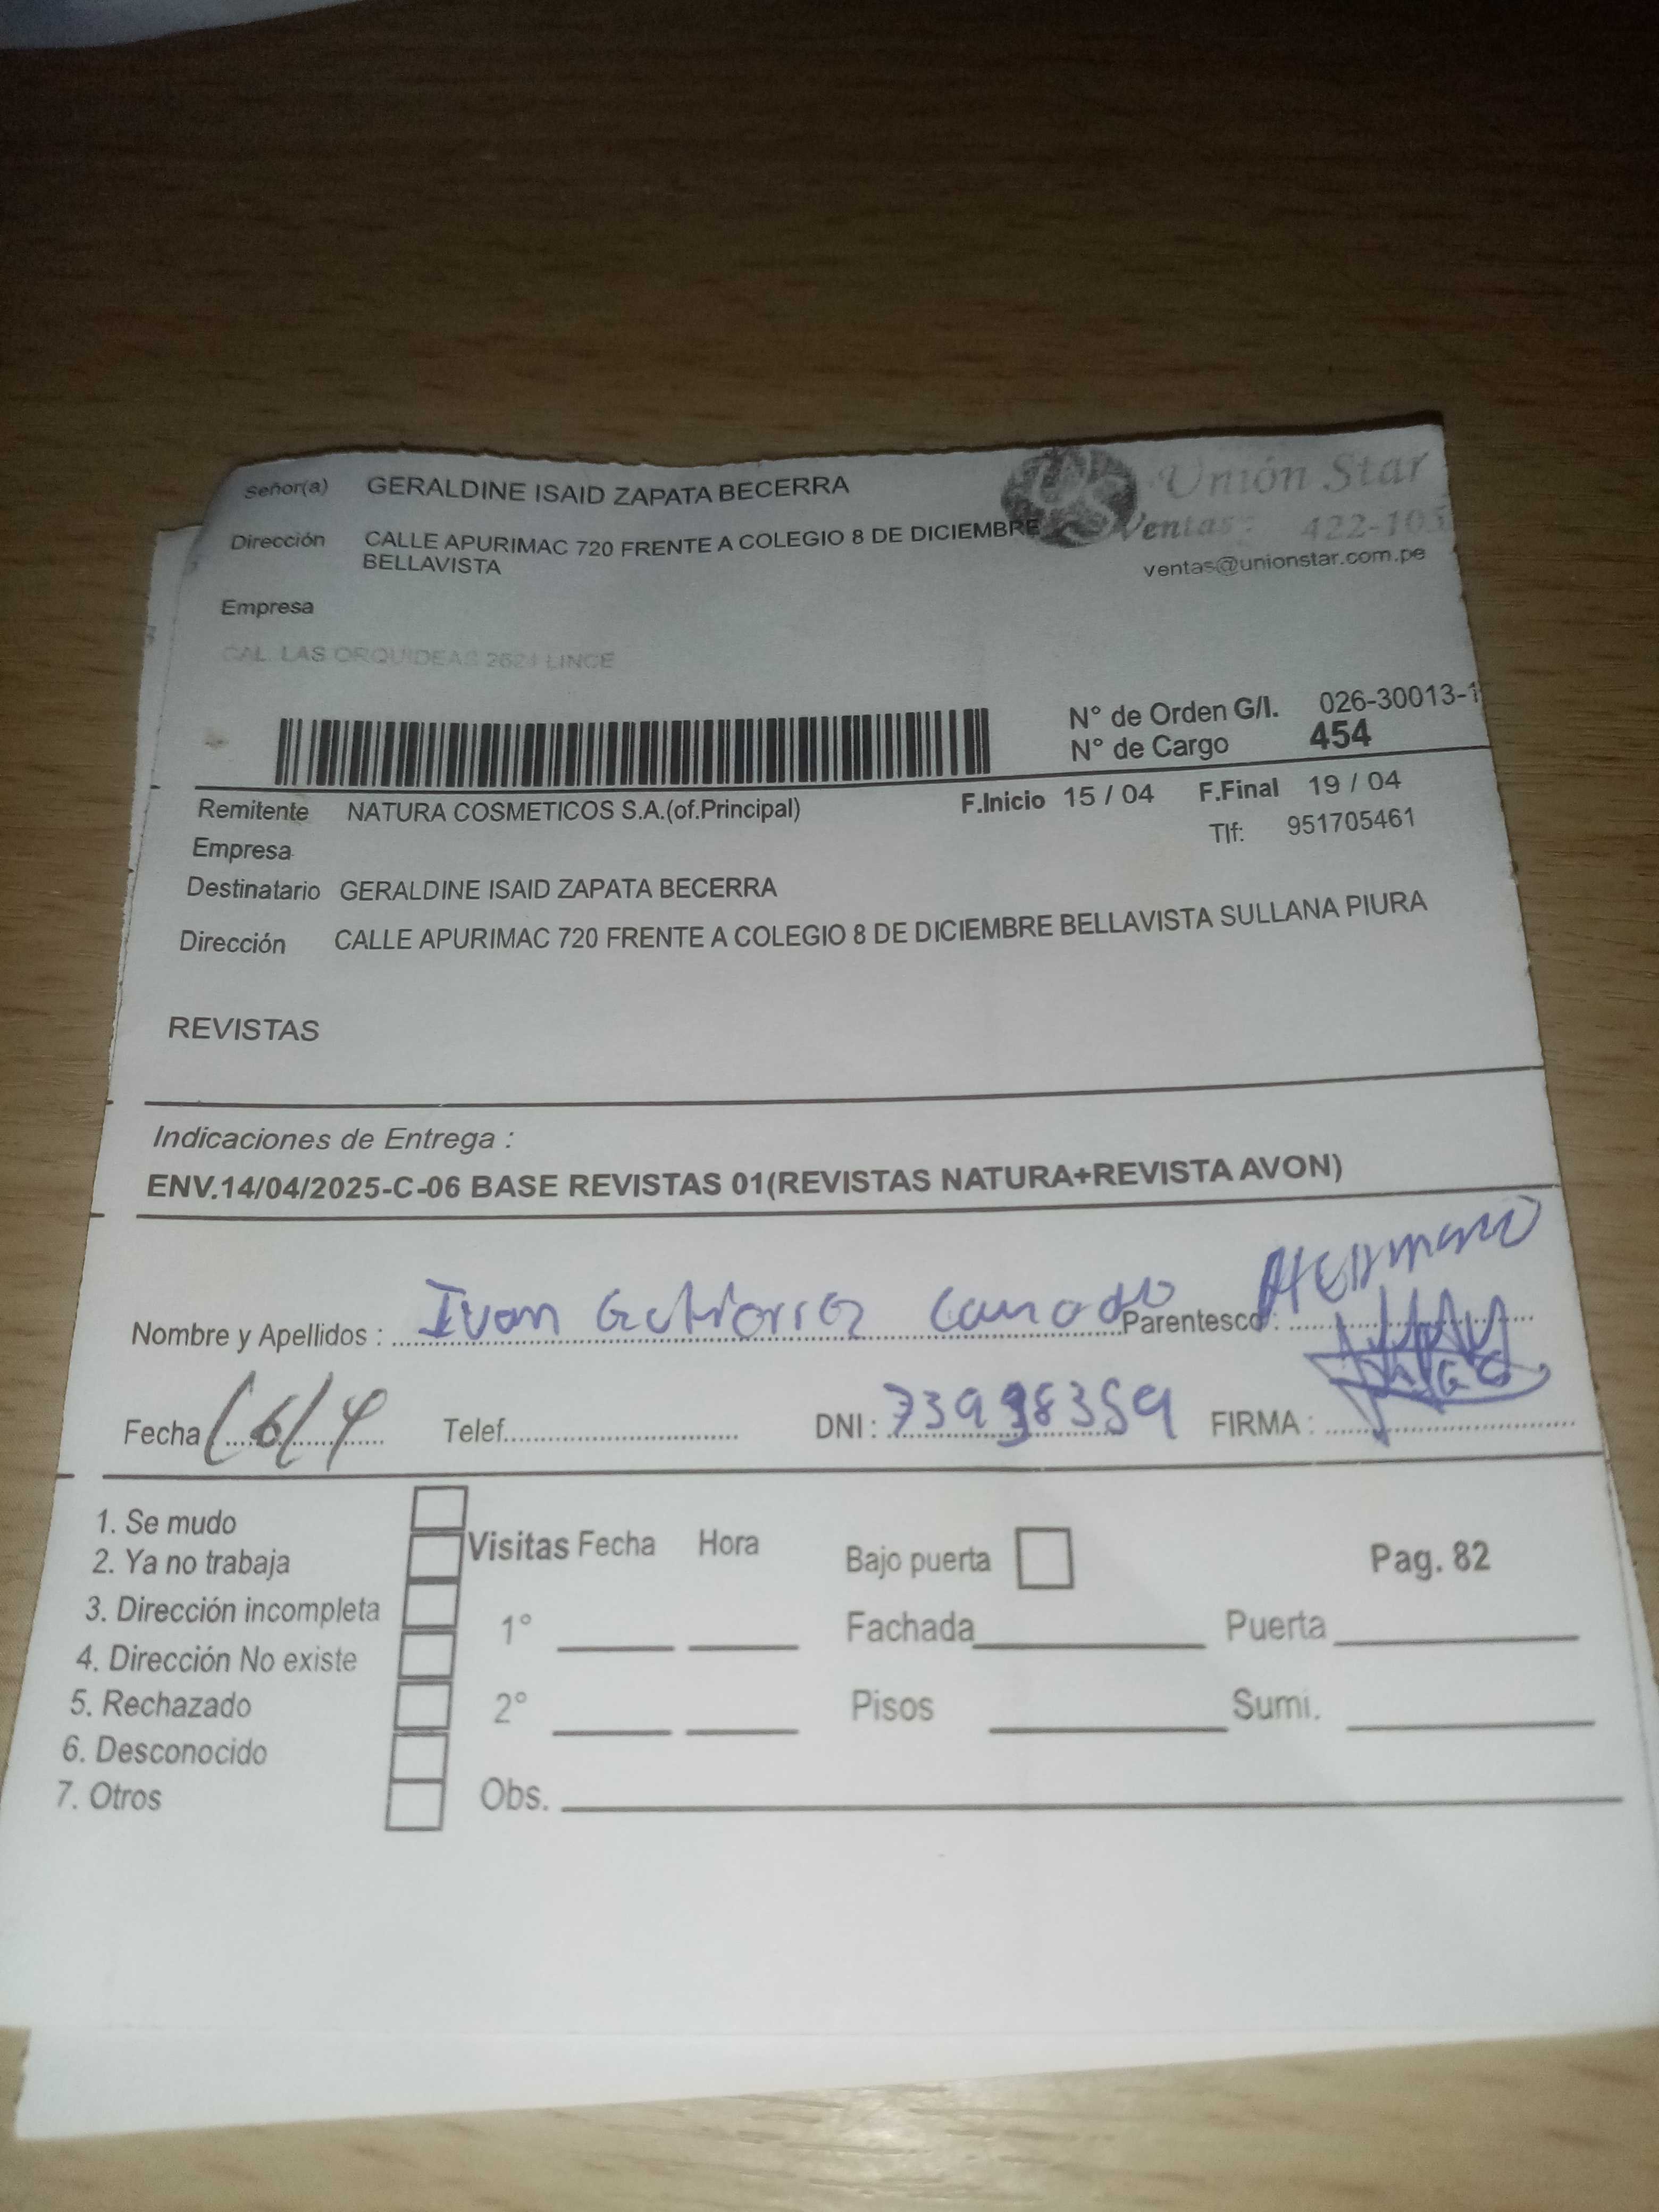 Señor(a) GERALDINE ISAID ZAPATA BECERRA
Unión Star
Dirección CALLE APURIMAC 720 FRENTE A COLEGIO 8 DE DICIEMBRE
BELLAVISTA
Ventas: 422-105
ventas@unionstar.com.pe
Empresa
CAL. LAS ORQUIDEAS 2621 LINCE
N° de Orden G/I. 026-30013-1
N° de Cargo 454
Remitente NATURA COSMETICOS S.A.(of.Principal) F.Inicio 15 / 04 F.Final 19 / 04
Empresa Tlf: 951705461
Destinatario GERALDINE ISAID ZAPATA BECERRA
Dirección CALLE APURIMAC 720 FRENTE A COLEGIO 8 DE DICIEMBRE BELLAVISTA SULLANA PIURA
REVISTAS
Indicaciones de Entrega :
ENV.14/04/2025-C-06 BASE REVISTAS 01(REVISTAS NATURA+REVISTA AVON)
Nombre y Apellidos : Ivan Gutierrez Parentesco : Hermano
Fecha 16/4 Telef. DNI : 73998359 FIRMA :
1. Se mudo
2. Ya no trabaja
3. Dirección incompleta
4. Dirección No existe
5. Rechazado
6. Desconocido
7. Otros
Visitas Fecha Hora
1°
2°
Obs.
Bajo puerta Pag. 82
Fachada Puerta
Pisos Sumi.